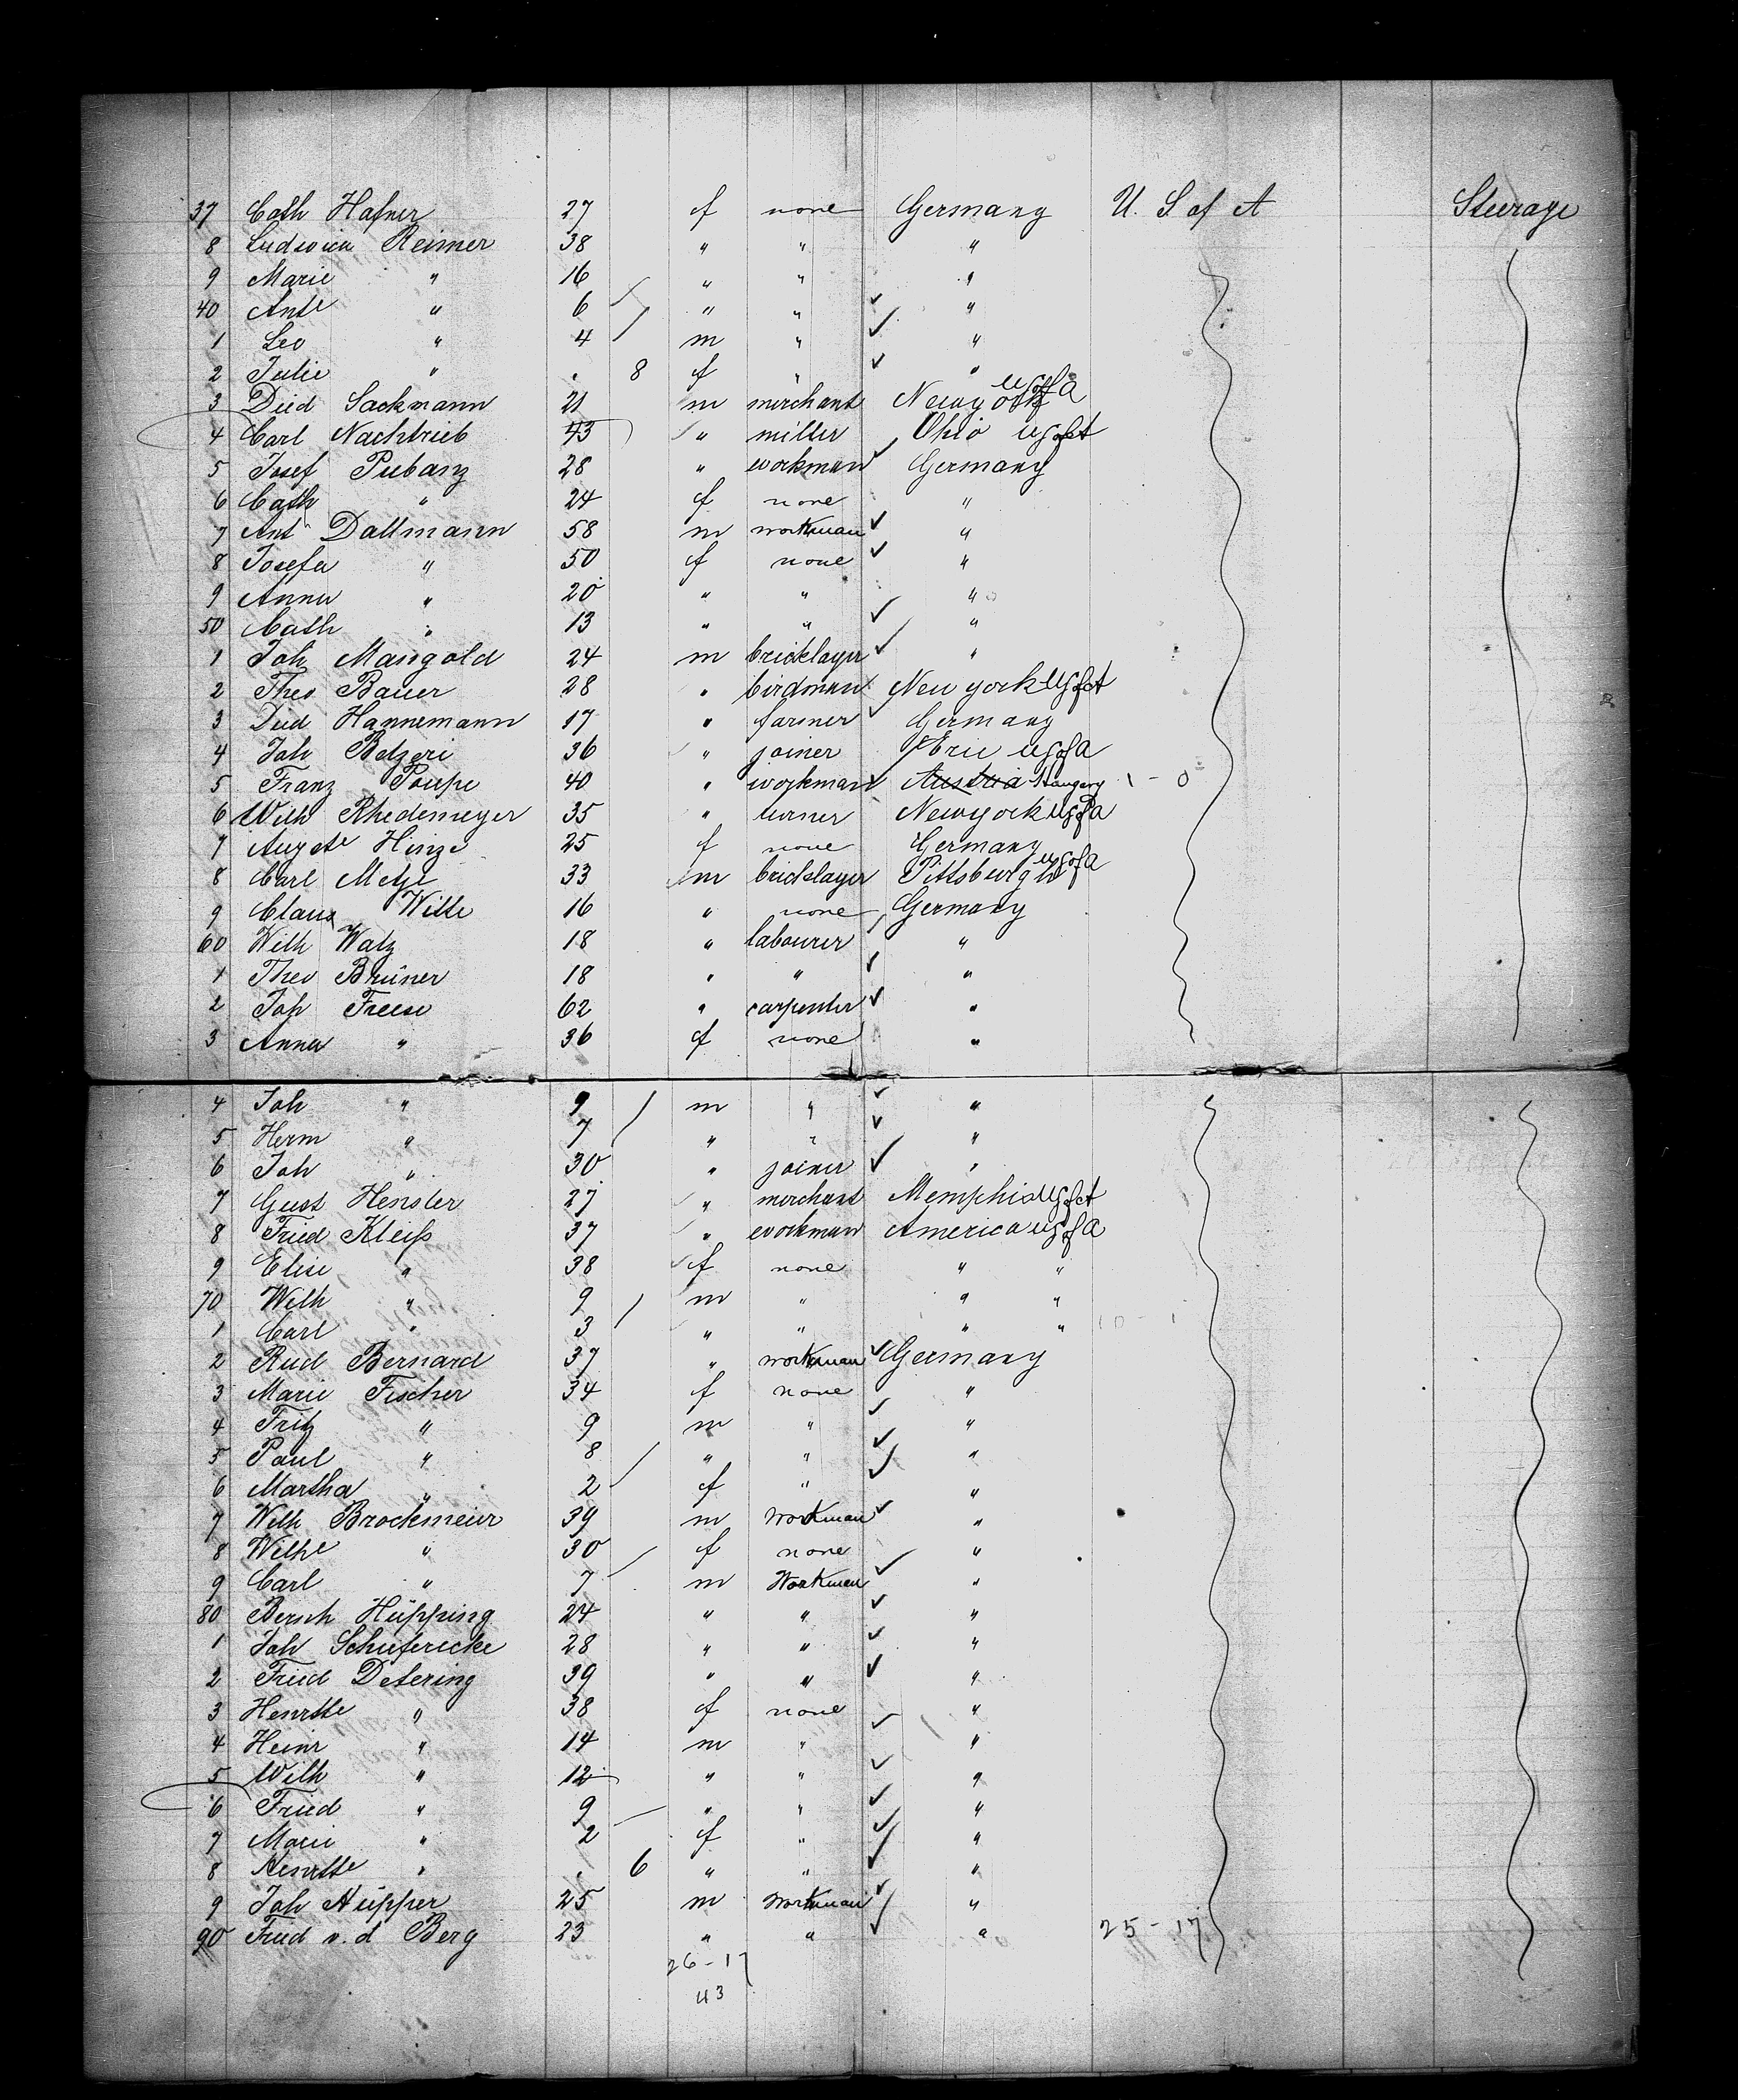 37 Cath Hafner 27 f none Germany U. S of A Steerage
8 Ludwica Reimer 38 " " "
9 Marie " 16 " " "
40 Ante " 6 " " "
1 Leo " 4 m " "
2 Julie " . 8 f " "
3 Died Sackmann 21 m merchant Newyork US of A
4 Carl Nachtrieb 43 " miller Ohio US of A
5 Josef Pubanz 28 " workman Germany
6 Cath " 24 f none "
7 Ant Dallmann 58 m workman "
8 Josefa " 50 f none "
9 Anna " 20 " " "
50 Cath " 13 " " "
1 Joh Mangold 24 m bricklayer "
2 Theo Bauer 28 " birdman New york US of A
3 Died Hannemann 17 " farmer Germany
4 Joh Betzeri 36 " joiner Erie US of A
5 Franz Poupe 40 " workman Austria Hungary 1 - 0
6 Wilh Rhedemeyer 35 " turner Newyork US of A
7 Augste Hinze 25 f none Germany
8 Carl Metze 33 m bricklayer Pittsburgh US of A
9 Claus Witte 16 " none Germany
60 Wilh Watz 18 " labourer "
1 Theo Brüner 18 " " "
2 Joh Freese 62 " carpenter "
3 Anna " 36 f none "
4 Joh " 9 m " "
5 Herm " 7 " " "
6 Joh " 30 " joiner "
7 Gust Hensler 27 " merchant Memphis US of A
8 Fried Kleiß 37 " workman America US of A
9 Elise " 38 f none " "
70 Wilh " 9 m " " "
1 Carl " 3 " " " " 10 - 1
2 Rud Bernard 37 " workman Germany
3 Marie Fischer 34 f none "
4 Fritz " 9 m " "
5 Paul " 8 " " "
6 Martha " 2 f " "
7 Wilh Brockmeier 39 m Workman "
8 Wilhe " 30 f none "
9 Carl " 7 m Workman "
80 Bernh Hüpping 24 " " "
1 Joh Schufericke 28 " " "
2 Fried Detering 39 " " "
3 Henrtte " 38 f none "
4 Heinr " 14 m " "
5 Wilh " 12 " " "
6 Fried " 9 " " "
7 Marie " 2 f " "
8 Henrtte " . 6 " " "
9 Joh Hüpper 25 m Workman "
90 Fried v. d Berg 23 " " " 25 - 17
26 - 17
43